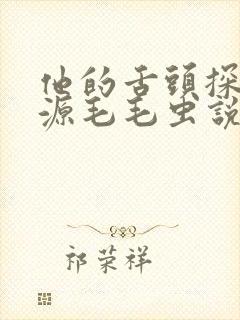 他的舌頭探
源毛毛虫說
祁荣祥